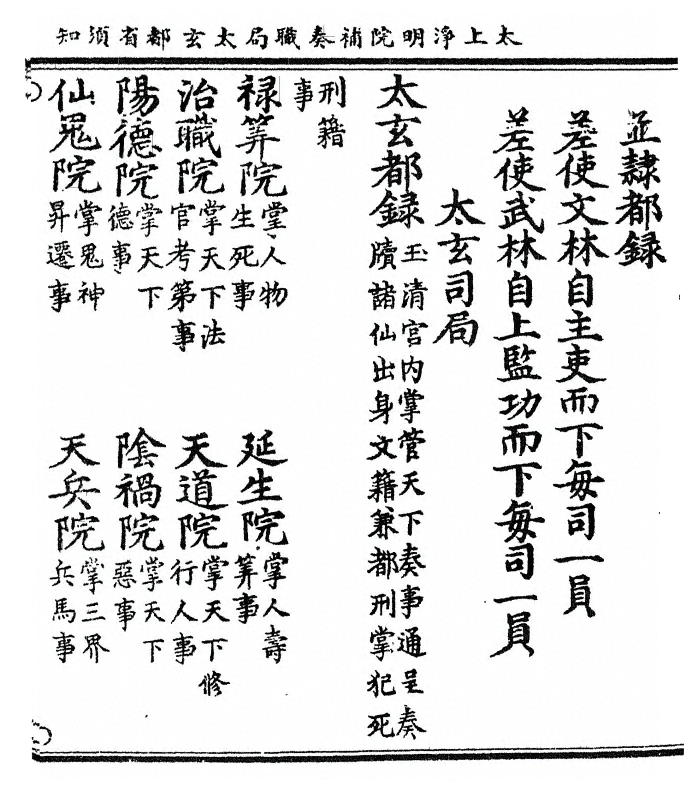 太上淨明院補奏職局太玄都省須知
並隷都録
差使文林自主吏而下每司一員
差使武林自上監功而下每司一員
太玄司局
太玄都録
玉清宮内掌管天下奏事通呈奏
牘諸仙出身文籍兼都刑掌犯死
刑籍
事
禄筭院
掌人物
生死事
延生院
掌人壽
筭事
治職院
掌天下法
官考第事
天道院
掌天下修
行人事
陽德院
掌天下
德事
陰禍院
掌天下
惡事
仙鬼院
掌鬼神
昇遷事
天兵院
掌三界
兵馬事